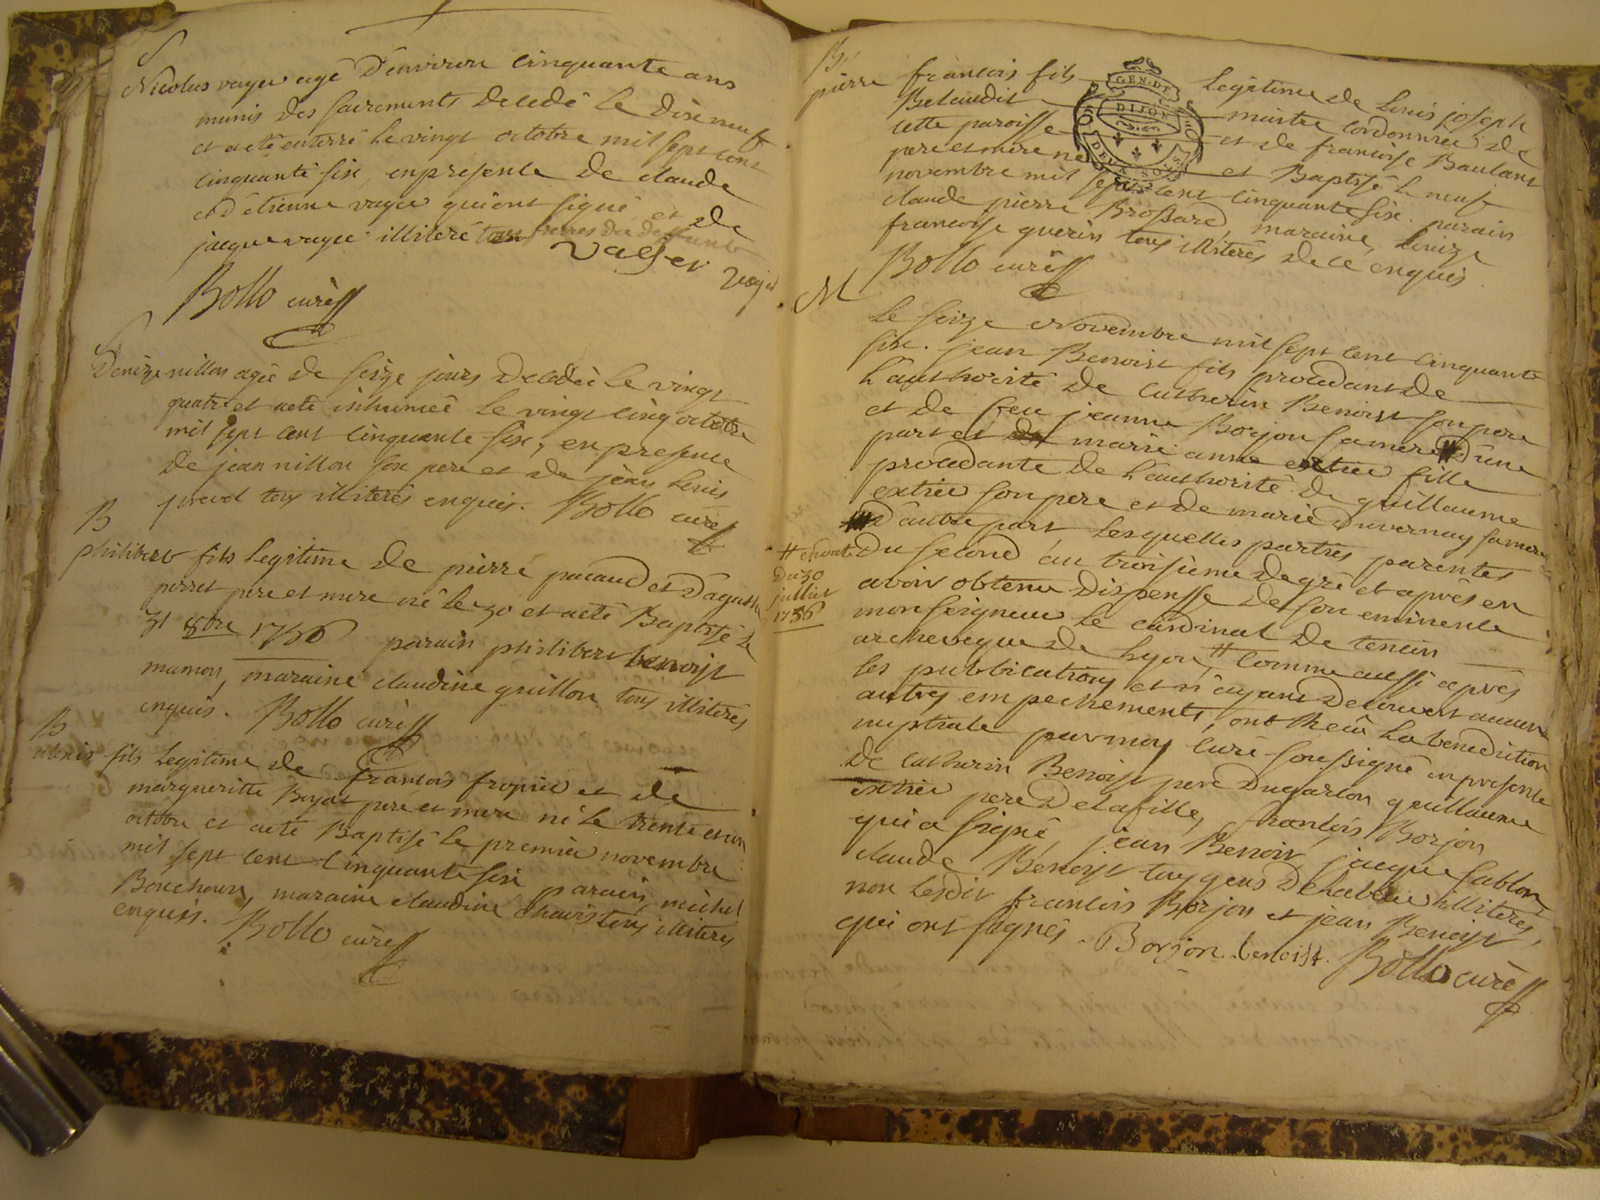 S
Nicolas vayer agé d'environ cinquante ans
munis des sacrements decedé le dixneuf
et aeté enterré le vingt octobre mil sept cent
cinquante six, en presence de claude
et d'etienne vayer qui ont signé et de
jacque vayer illiteré tous freres du deffunt
vayer vayer
Bollo curé
S
Denize nillon agée de seize jours decedée le vingt
quatre et aeté inhumeé le vingt cinq octobre
mil sept cent cinquante six, en presence
de jean nillon son pere et de jean Louis
tous illiterés enquis. Bollo curé
B
philibert fils legitime de pierre pacaud et d'
perret pere et mere né le 30 et aeté Baptisé le
31 8bre 1756 parain philibert benoist
mamon, maraine claudine guillon tous illiterés
enquis. Bollo curé
B
fils legitime de francois fropier et de
margueritte Boyat pere et mere né le trente et un
octobre et aeté Baptisé le premier novembre
mil sept cent cinquante six parain michel
Bouchoux, maraine claudine Chavis tous illiterés
enquis. Bollo curé
B
pierre francois fils legitime de Louis joseph
Belaudit maitre cordonnier de
cette paroisse et de francoise Baulant
pere et mere né et Baptisé le neuf
novembre mil sept cent cinquante six. parain
claude pierre Brossard, maraine, Louize
francoise guerin tous illiterés de ce enquis
Bollo curé
GEN. DE DIJON
DEUX SOLS
M
Le seize Novembre mil sept cent cinquante
six. jean Benoist fils procedant de
l'authorité de Catherin Benoist son pere
et de feu jeanne Borjon sa mere d'une
part et marie anne extier fille
procedante de l'authorité de guillaume
extier son pere et de marie Duvernay sa mere
d'autre part lesquelles parties parentes
du second au troisieme degré et aprés en
avoir obtenu dispensse de son eminence
monseigneur le cardinal de tencin
archeveque de Lyon, # comme aussi aprés
les publications et n'ayant decouvert aucuns
autres empechements, ont receu la benediction
nuptiale par moy curé soussigné en presence
de Catherin Benoist pere du garcon guillaume
extier pere de la fille, francois Borjon
qui a signé jean Benoist jacque Sablon
claude Benoist tous gens de labeur illiterés,
non lesdit francois Borjon et jean Benoist
qui ont signés. Borjon. benoist. Bollo curé
du 30
juillet
1756